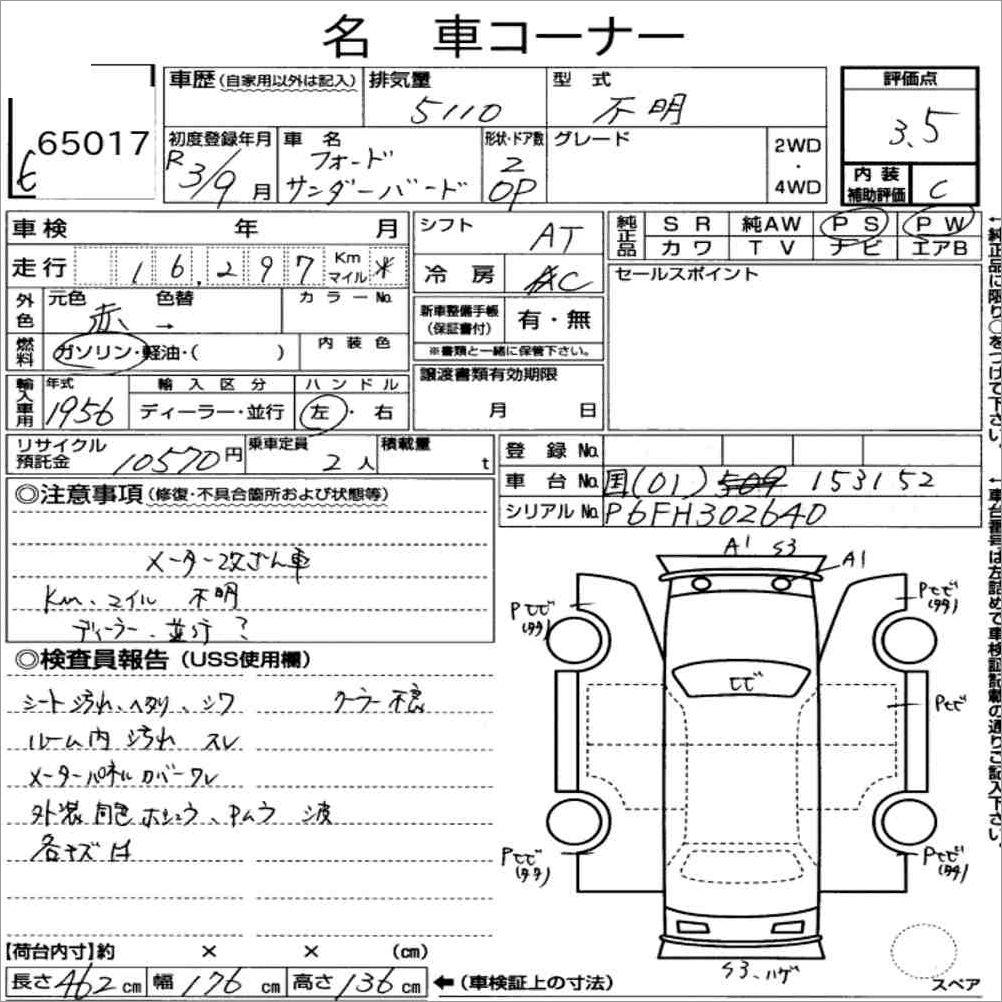 名 車コーナー
65017
車歴 (自家用以外は記入)
排気量
5110
型 式
不明
評価点
3.5
初度登録年月
R3/9月
車 名
フォード
サンダーバード
形状・ドア数
2
OP
グレード
2WD
・
4WD
内 装
補助評価
C
車 検 年 月
走 行 16,297 Km マイル ※
外色 元色 赤 色替 → カラーNo.
燃料 ガソリン・軽油・( ) 内 装 色
輸入車用 年式 1956 輸 入 区 分 ディーラー・並行 ハ ン ド ル 左・右
シフト AT
冷 房 AC
新車整備手帳
(保証書付)
有・無
※書類と一緒に保管下さい。
譲渡書類有効期限
月 日
純正品 S R 純AW P S P W
カ ワ T V ナ ビ エアB
セールスポイント
←純正品に限り○をつけて下さい。
リサイクル
預託金
10570円
乗車定員
2人
積載量
t
登 録 No.
車 台 No. 国(01) 509 153152
シリアル No. P6FH302640
←車台番号は左詰めで車検証記載の通りご記入下さい。
◎注意事項 (修復・不具合箇所および状態等)
メーター改ざん車
Km、マイル 不明
ディーラー、並行?
◎検査員報告 (USS使用欄)
シート汚れ、ヘタリ、シワ クーラー不良
ルーム内 汚れ スレ
メーターパネルカバーワレ
外装 同色ホシュウ、Pムラ 波
各キズ 凹
A1 S3
A1
Pヒビ
(タタ)
Pヒビ
(タタ)
ヒビ
Pヒビ
Pヒビ
(タタ)
Pヒビ
(タタ)
S3、ハゲ
スペア
【荷台内寸】約 × × (cm)
長さ 462 cm 幅 176 cm 高さ 136 cm ←(車検証上の寸法)